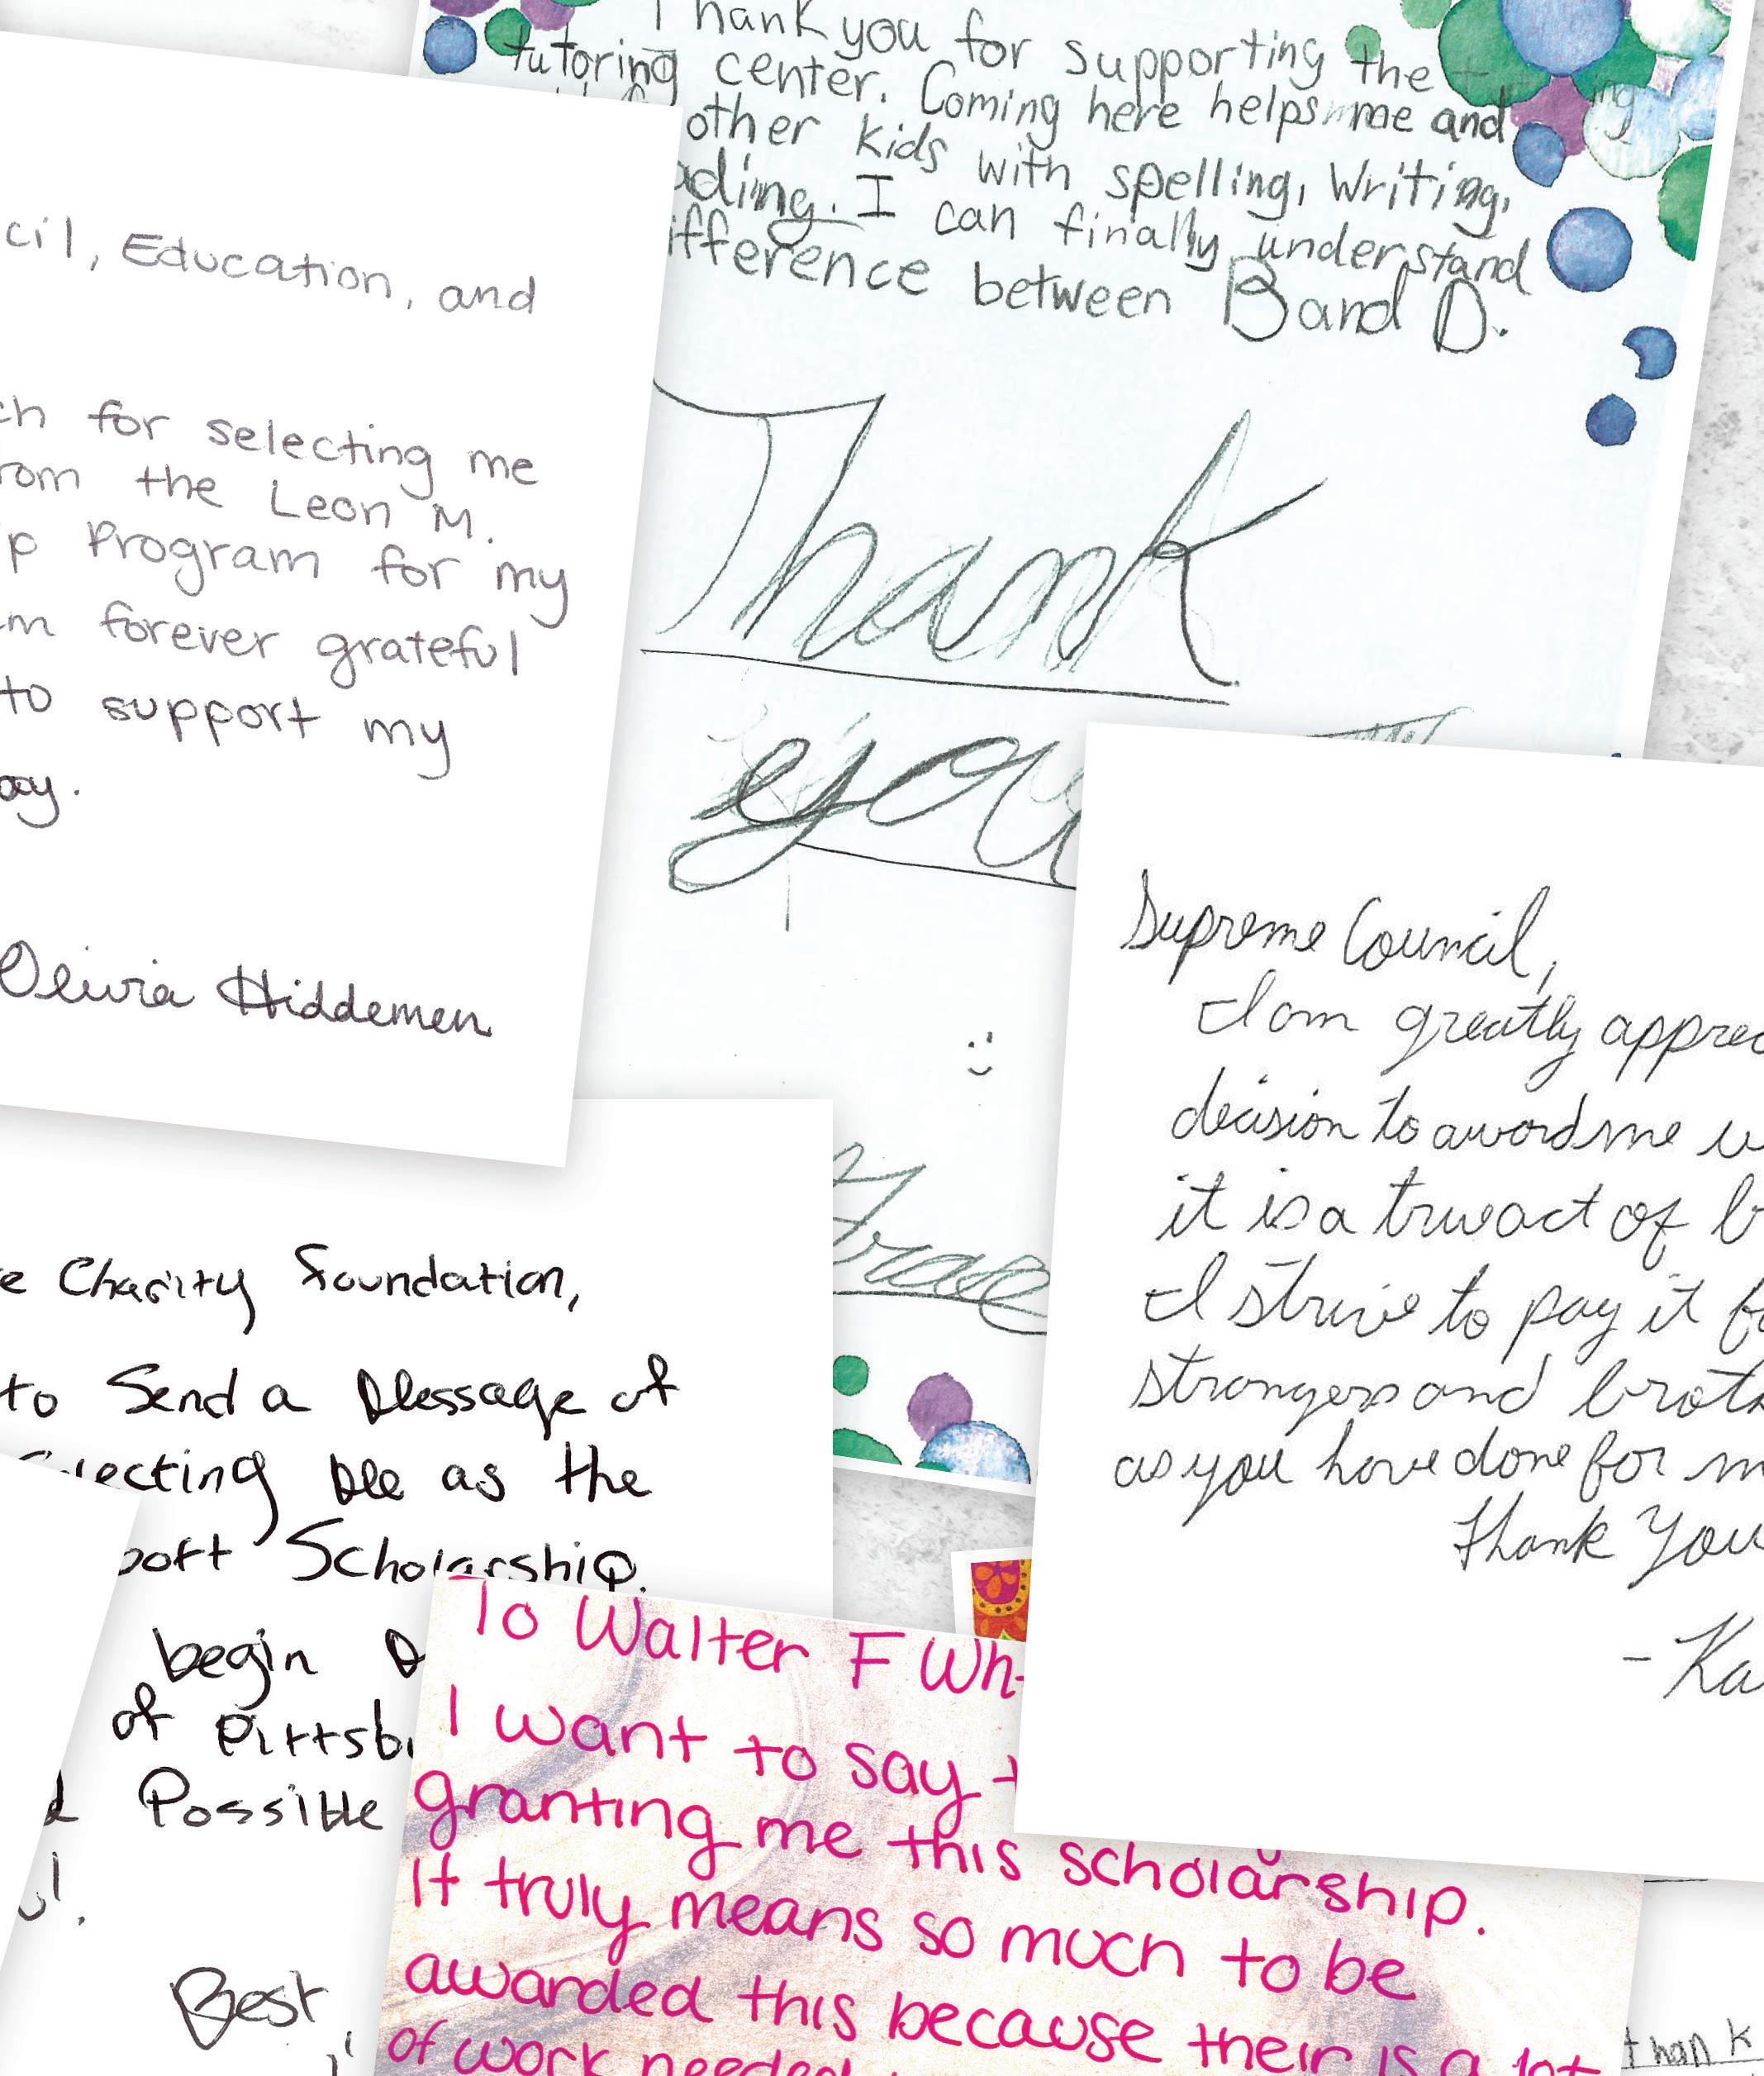 Thank you for supporting the
tutoring center. Coming here helps me and
other kids with spelling, Writing,
ading. I can finally understand
ifference between B and D.
Thank
you
Grace
cil, Education, and
ch for selecting me
rom the Leon M.
p Program for my
m forever grateful
to support my
ay.
Olivia Hiddemen
Supreme Council,
I am greatly apprec
decision to award me w
it is a true act of b
I strive to pay it fo
strangers and broth
as you have done for m
Thank You
- Ka
e Charity Foundation,
to Send a Message of
ecting Me as the
port Scholarship.
begin
of Pittsb
d Possible
ul.
Best,
To Walter F Wh
I want to say t
granting me this scholarship.
It truly means so much to be
awarded this because their is a lot
of work needed
thank